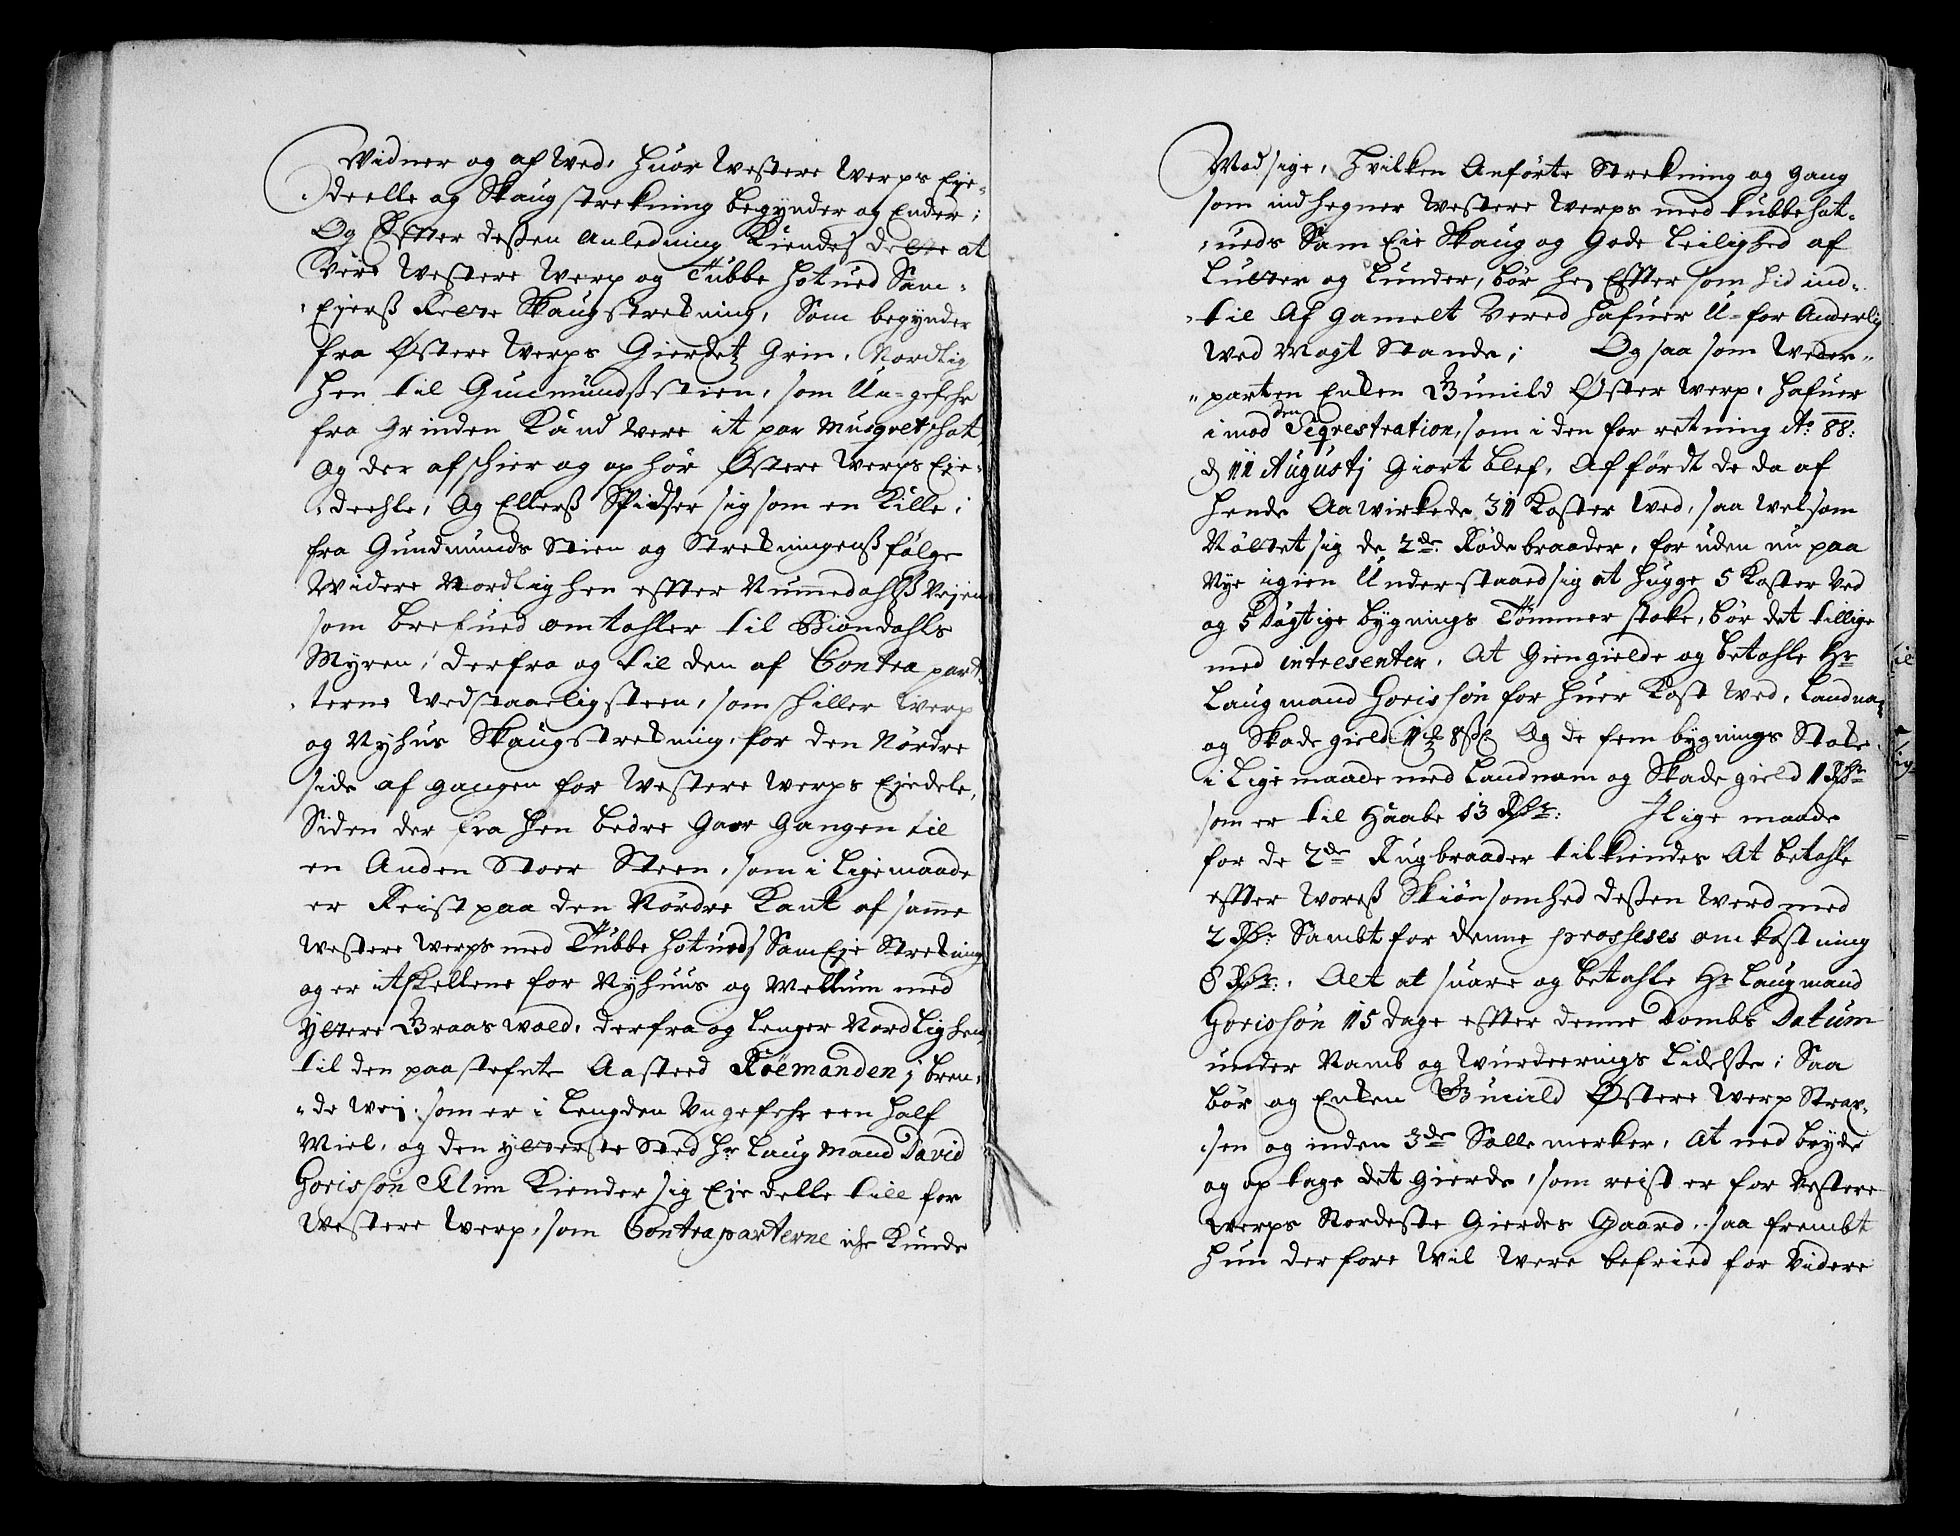 Widner og af Wed, huor Westere Werps Eje-
deelle og Skaugstrekning begynder og Ender;
Og Effter deßen Anledning Kiendes dette at
Vere Westere Werp og Tubbe Hotued Sam-
Ejerß Rette Skaugstrekning, Som begynder
fra Østere Werps Gierdetz Grin, Nordlig
hen til Gudmundßstien, som Un-gefehr
fra Grinden Kand Were it par Musqvetschot
Og der afschier og ophör Østere Werps Eje-
deehle, Og Ellerß Spidser sig som en Kille,
fra Gundmunds Stien og Strekningenß følge
Widere Nordlig hen effter Nummedahlß Vejen
som brefued omtahler til Biöndahls
Myren, derfra og til den af Contra part-
terne Wedstaaelig steen, som schiller Werp
og Nyhus Skaugstrekning, for den Nördre
side af gangen for Westere Werps Ejedele,
Siden der fra hen bedre Gaar Gangen til
en Anden Stoer Steen, som i Lige maade
er Reist paa den Nördre Kant af samme
Westere Werps med Tubbe Hotueds Sam Eje Strekning
og er itskellene for Nyhuus og Wellum med
Yttere Braaswold, derfra og lenger Nordlig hen
til den paastefnte Aasteed Röemanden j bren-
de Wej, som er i Lengden Ungefehr een half
Miel, og den ytterste Sted hr Laugmand David
Gorissön Klim Kiender sig Eje delle till for
Westere Werp, som Contraparterne iche Kunde
Modsige, Hvilken Anförte Strekning og gang
som indhegner Westere Werps med tubbehot-
ueds Sam Eie Skaug og Gode leilighed af
Lutter og Lunder, bör her Effter som hid ind-
til Af gamelt Vered hafuer U-for Anderlig
Wed Magt Stande; Og saa som Weder-
parten Enken Bunild Øster Werp, hafuer
imod den Seqrestration, som i den forretning Ao 88:
d 11 Augustj Giort blef, Afført de da af
hende Aawirkede 31 Koster Wed, saa vel som
Nöttet sig de 2de Rödebraader, for uden nu paa
Nye igien Understaaed sig at hugge 5 Koster Ved
og 5 Dögtige bygnings Tömmer stoke, bör det tillige
med intresenter, At Giengielde og betahle Hr
Laugmand Gorissön for huer Kost Wed, Landnam
og Skadegield 1½ 8ß Og de fem bygnings Stoke
i Lige maade med Landnam og Skadegield 1 Rdr
som er til Haabe 13 Rdr: Jlige maade
for de 2de Rugbraader tilkiendes At betahle
effter Woreß Skiönsomhed deßen Werd med
2 Rdr Sambt for denne prosseses omkostning
8 Rdr. Alt at suare og betahle Hr Laugmand
Gorissön 15 dage effter denne Dombs Datum
under Namb og Wurdeerings Lidelse; Saa
bör og Enken Bunild Østere Werp Strax-
sen og inden 3de Solle merker, At ned bryde
og op tage det Gierde, som reist er for Vestere
Werps Nordeste Gierdes Gaard, saa frembt
Hun derfore Wil Were befried for Videre